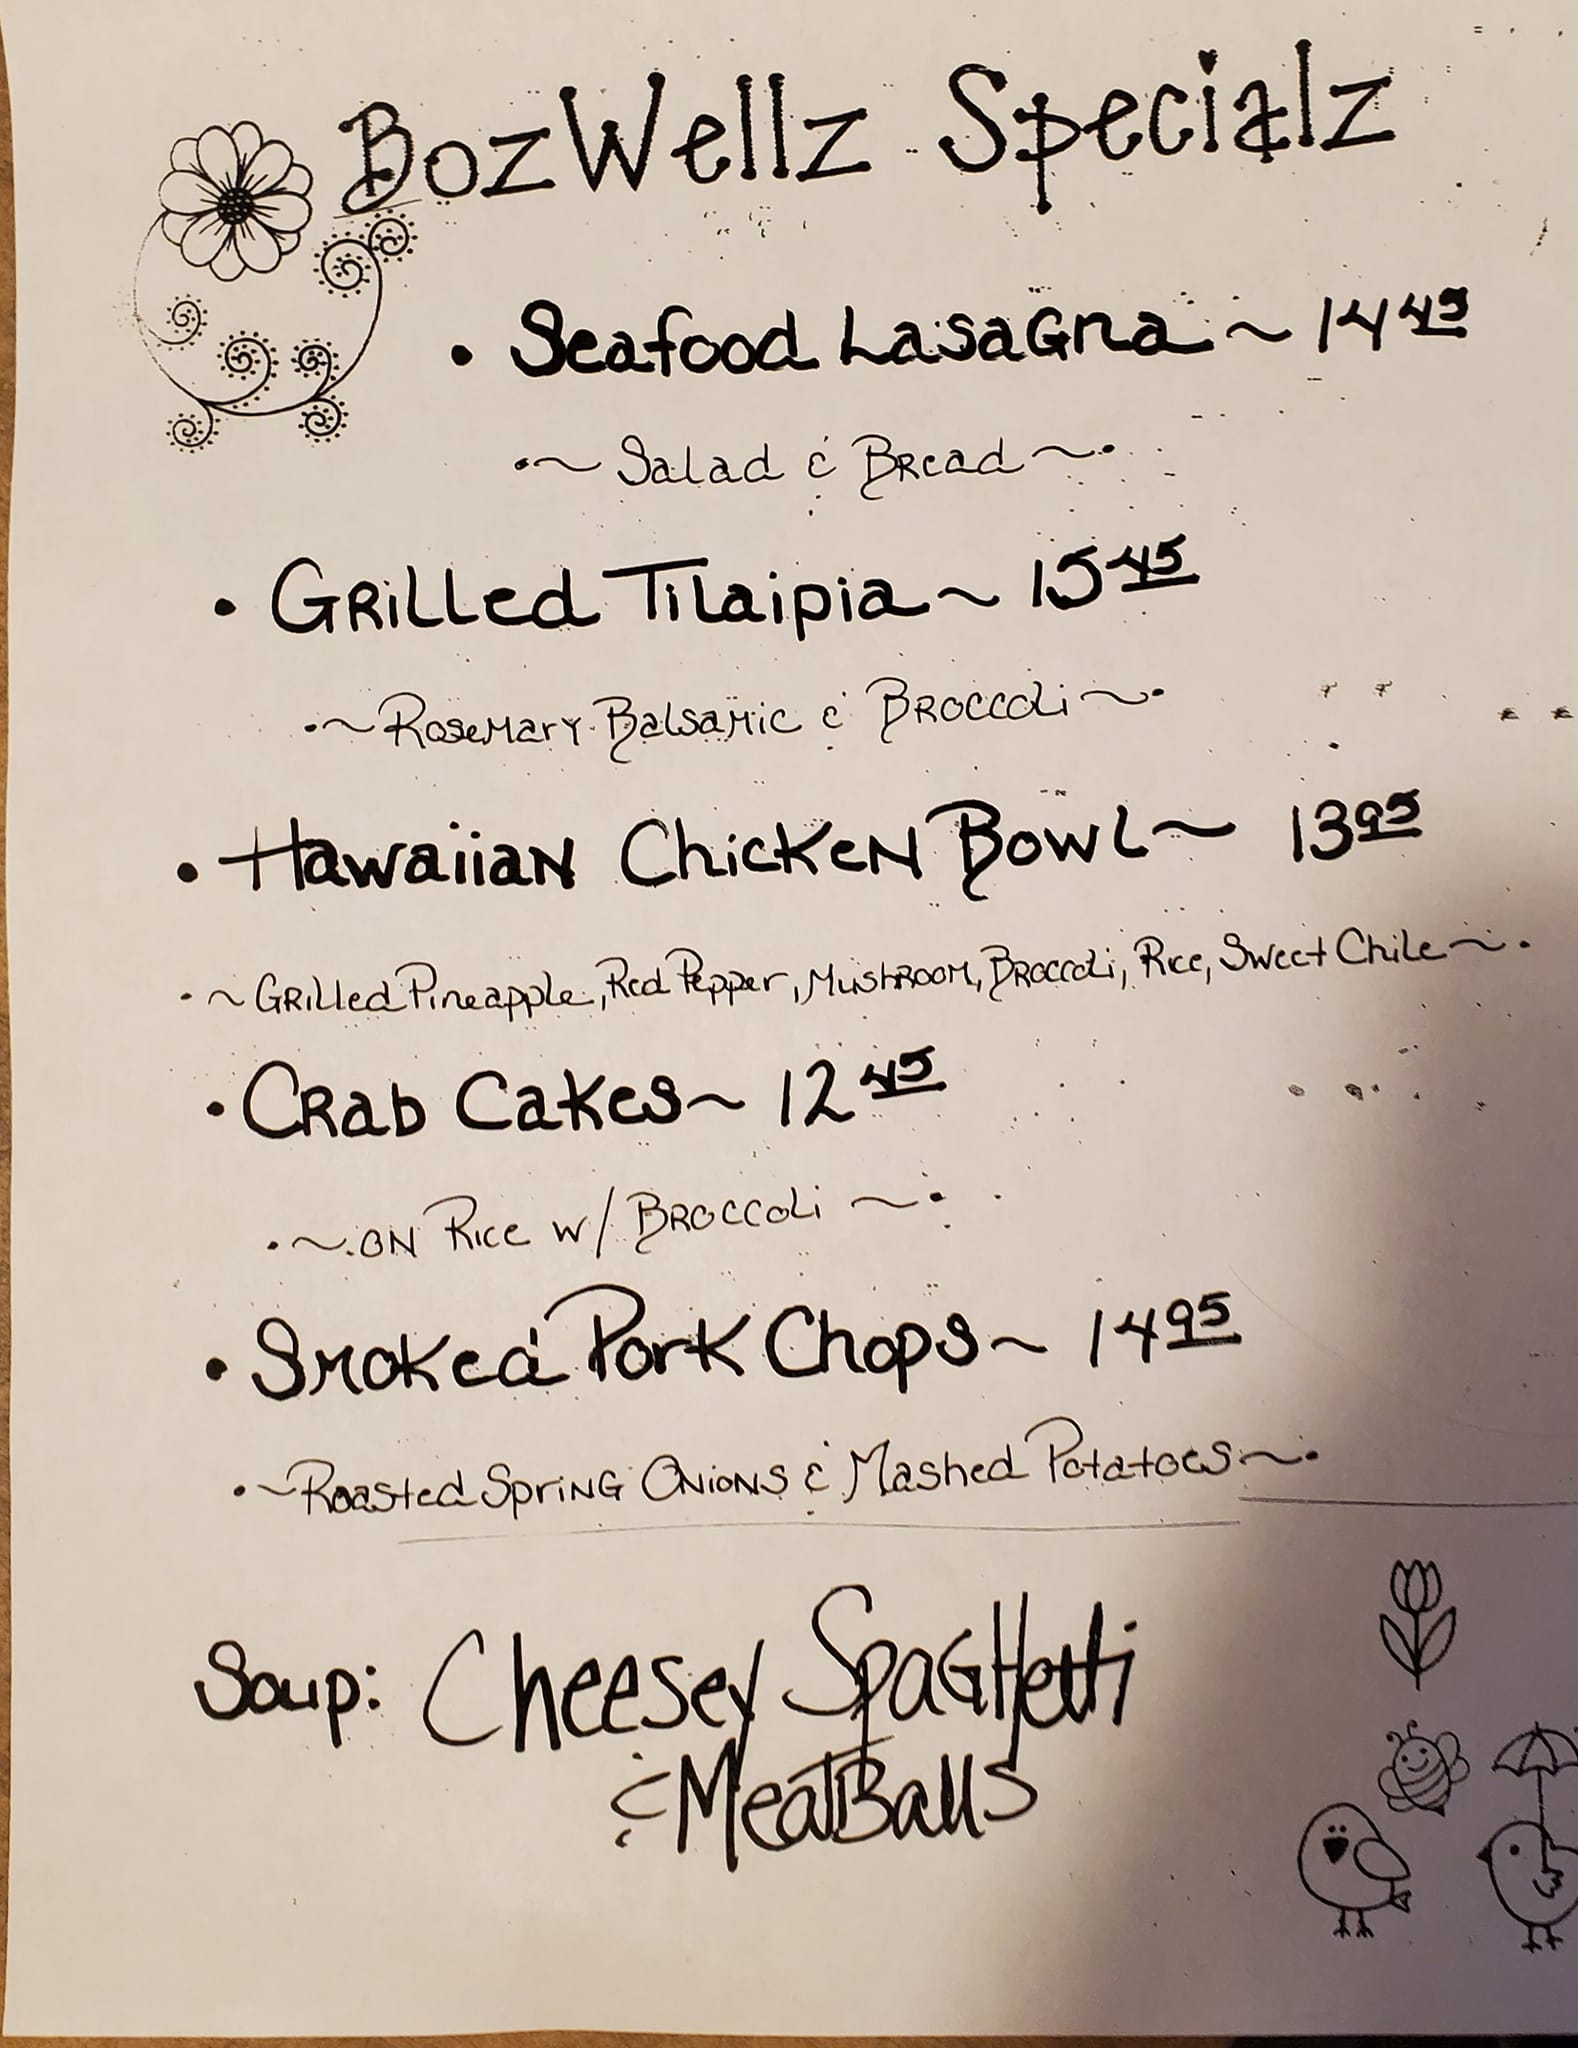 BozWellz Specialz
• Seafood Lasagna ~ 14 45
•~ Salad & Bread ~•
• Grilled Tilaipia ~ 15 45
•~ Rosemary Balsamic & Broccoli ~•
• Hawaiian Chicken Bowl ~ 13 95
•~ Grilled Pineapple, Red Pepper, Mushroom, Broccoli, Rice, Sweet Chile ~•
• Crab Cakes ~ 12 45
•~ on Rice w/ Broccoli ~•
• Smoked Pork Chops ~ 14 95
•~ Roasted Spring Onions & Mashed Potatoes ~•
Soup: Cheesey Spaghetti
& Meatballs